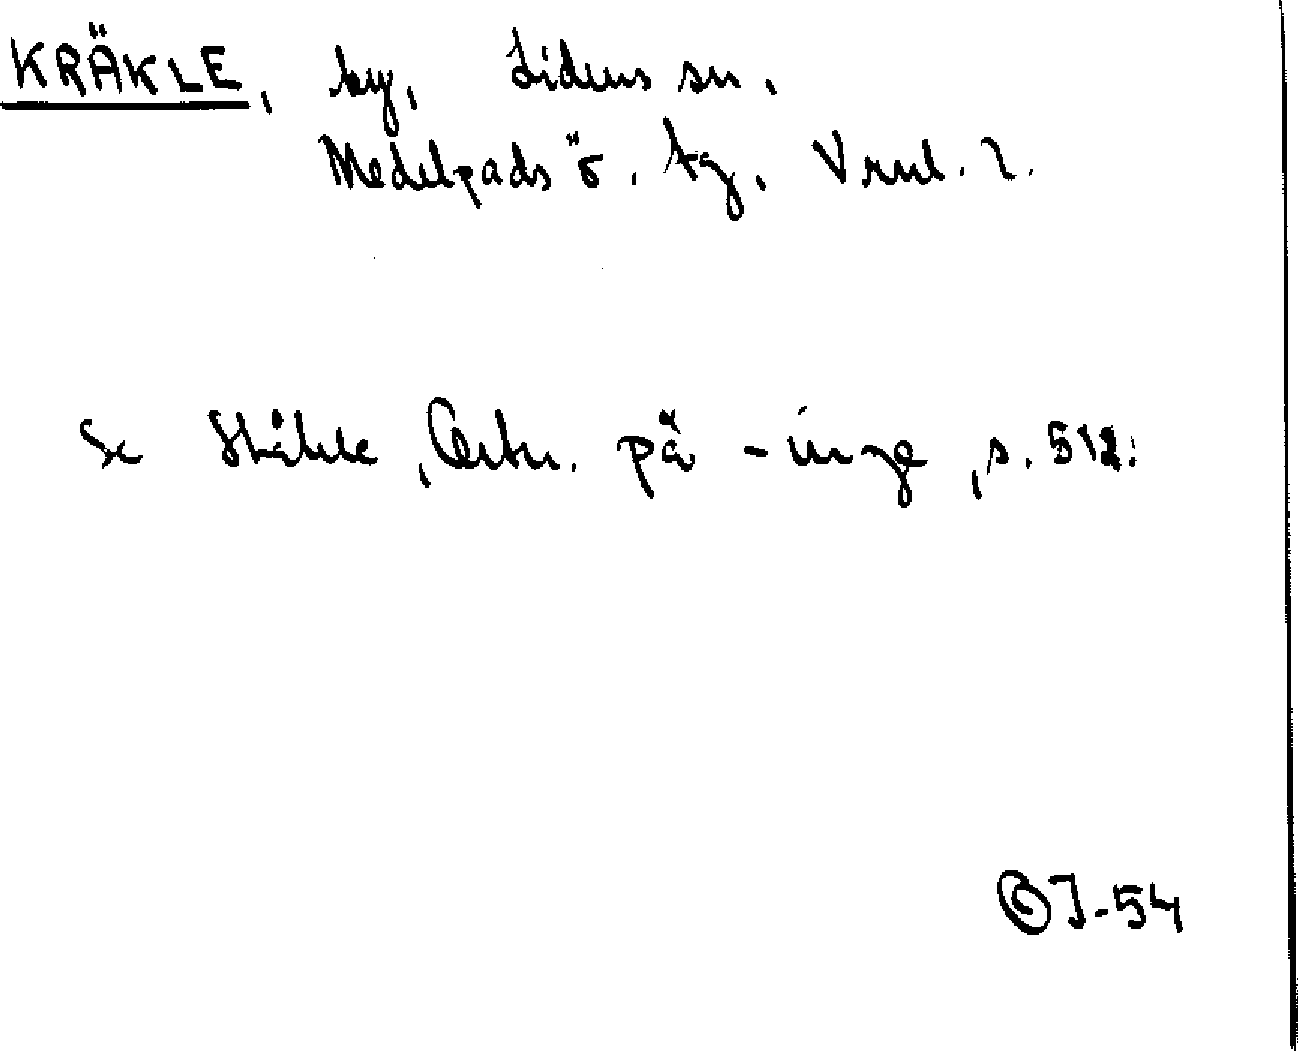 KRÄKLE, by, Lidens sn,
Medelpads ö. tg, Vrnl. l.
Se Ståhle, Ortn. på -inge, s. 512.
OJ-54